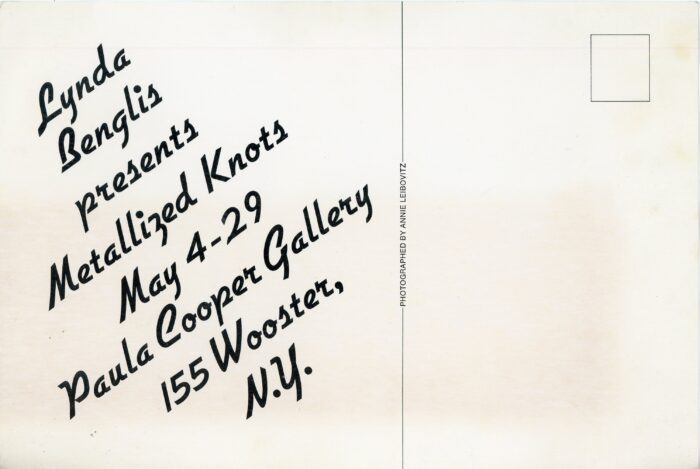 Lynda
Benglis
presents
Metallized Knots
May 4-29
Paula Cooper Gallery
155 Wooster,
N.Y.
PHOTOGRAPHED BY ANNIE LEIBOVITZ